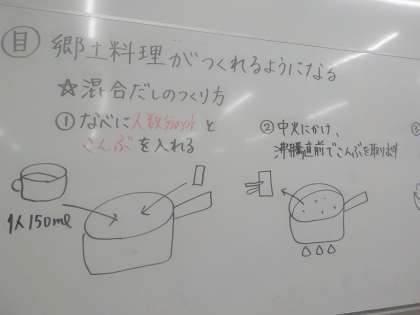 目 郷土料理がつくれるようになる
☆混合だしのつくり方
①なべに人数分の水と
こんぶを入れる
1人150ml
②中火にかけ、
沸騰直前でこんぶを取り出す
③